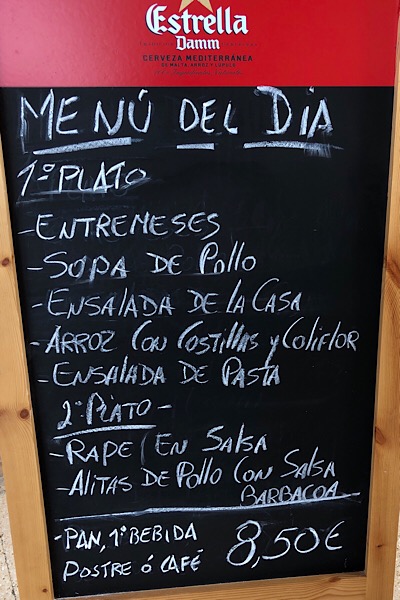 Estrella
Damm
CERVEZA MEDITERRÁNEA
DE MALTA, ARROZ Y LÚPULO
MENÚ DEL DIA
1º PLATO
- ENTREMESES
- SOPA DE POLLO
- ENSALADA DE LA CASA
- ARROZ CON COSTILLAS Y COLIFLOR
- ENSALADA DE PASTA
2º PLATO -
- RAPE EN SALSA
- ALITAS DE POLLO CON SALSA
BARBACOA
- PAN, 1ª BEBIDA
POSTRE Ó CAFÉ 8,50€